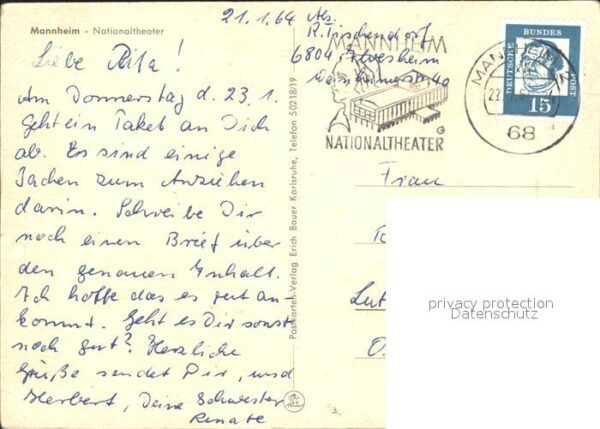 Mannheim · Nationaltheater
21.1.64
Liebe Rita!
Am Donnerstag d. 23.1.
geht ein Paket an Dich
ab. Es sind einige
Sachen zum Anziehen
darin. Schreibe Dir
noch einen Brief über
den genauen Inhalt.
Ich hoffe das es gut an
kommt. Geht es Dir sonst
noch gut? Herzliche
Grüße sendet Dir, und
Herbert, Deine Schwester
Renate
Postkarten-Verlag Erich Bauer Karlsruhe, Telefon 50218/19
Abs.
R. Tischendorf
6804 Ilvesheim
MANNHEIM
NATIONALTHEATER
MANNHEIM 2
22.
68
DEUTSCHE
BUNDES
POST
15
Frau
Lut
O.
privacy protection
Datenschutz